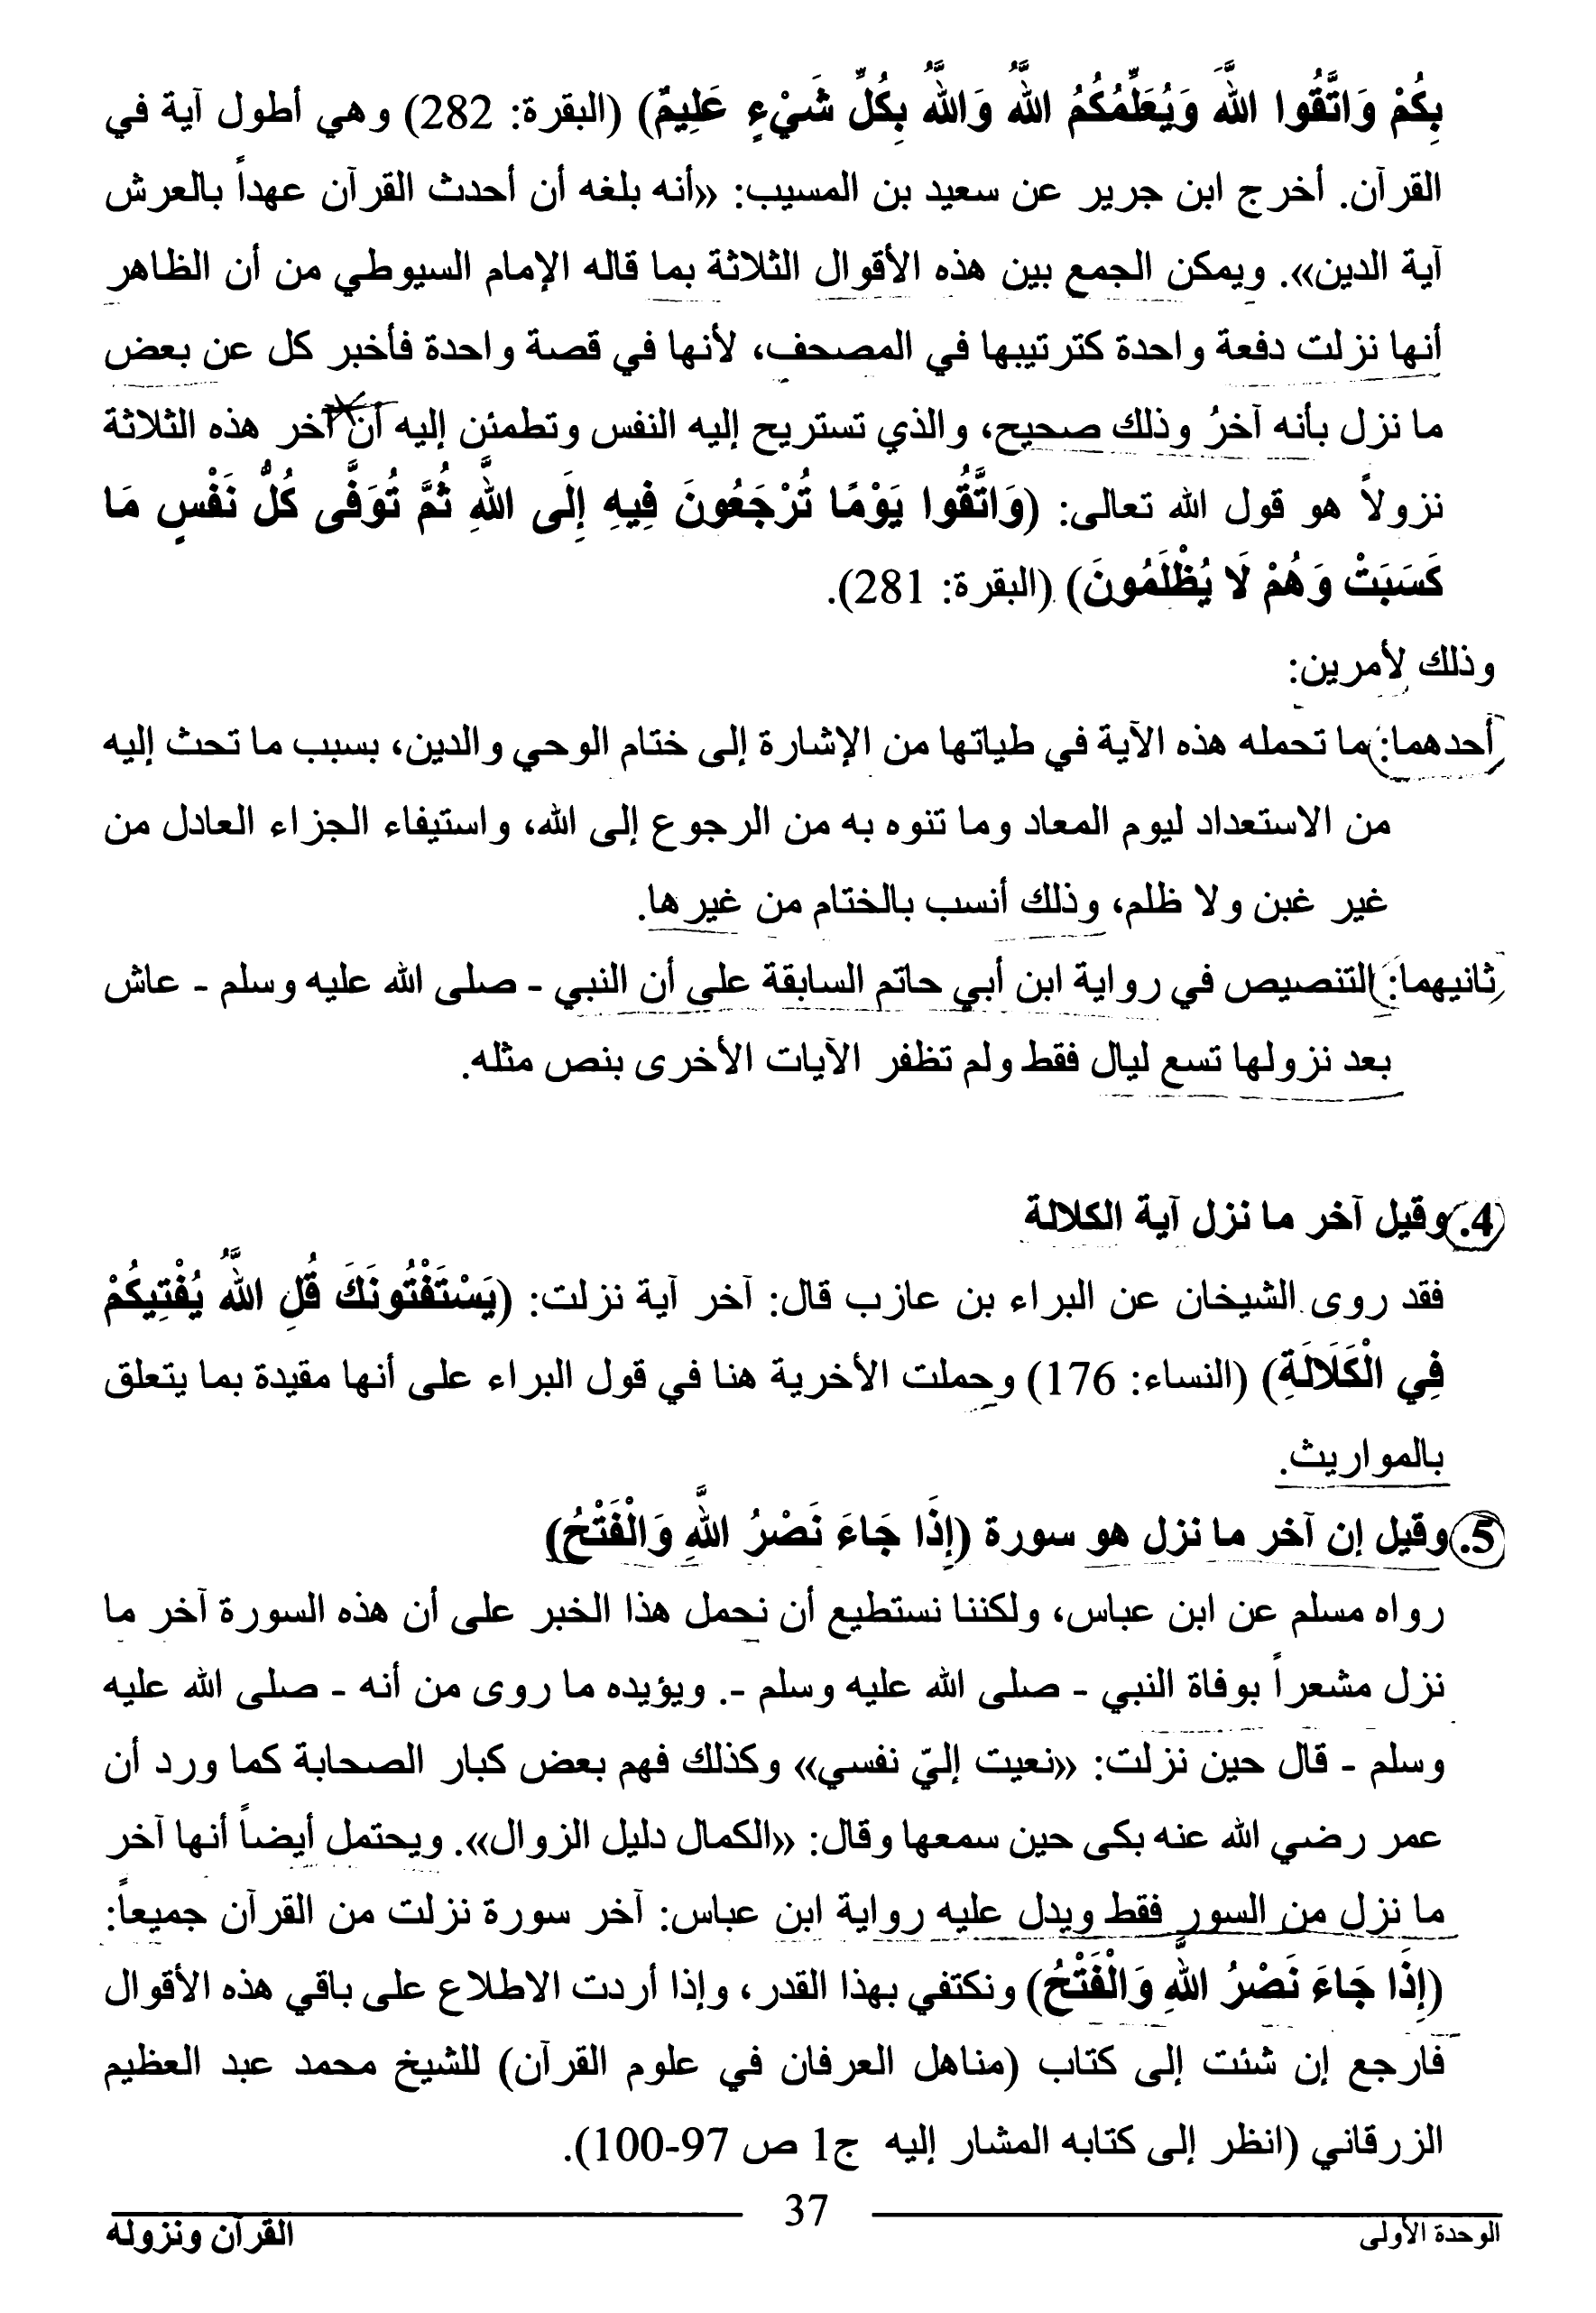 بِكُمْ وَاتَّقُوا اللَّهَ وَيُعَلِّمُكُمُ اللَّهُ وَاللَّهُ بِكُلِّ شَيْءٍ عَلِيمٌ) (البقرة: 282) وهي أطول آية في
القرآن. أخرج ابن جرير عن سعيد بن المسيب: «أنه بلغه أن أحدث القرآن عهداً بالعرش
آية الدين». ويمكن الجمع بين هذه الأقوال الثلاثة بما قاله الإمام السيوطي من أن الظاهر
أنها نزلت دفعة واحدة كترتيبها في المصحف، لأنها في قصة واحدة فأخبر كل عن بعض
ما نزل بأنه آخرُ وذلك صحيح، والذي تستريح إليه النفس وتطمئن إليه أن آخر هذه الثلاثة
نزولاً هو قول الله تعالى: (وَاتَّقُوا يَوْمًا تُرْجَعُونَ فِيهِ إِلَى اللَّهِ ثُمَّ تُوَفَّى كُلُّ نَفْسٍ مَا
كَسَبَتْ وَهُمْ لَا يُظْلَمُونَ) (البقرة: 281).
وذلك لأمرين:
أحدهما: ما تحمله هذه الآية في طياتها من الإشارة إلى ختام الوحي والدين، بسبب ما تحث إليه
من الاستعداد ليوم المعاد وما تنوه به من الرجوع إلى الله، واستيفاء الجزاء العادل من
غير غبن ولا ظلم، وذلك أنسب بالختام من غيرها.
ثانيهما: التنصيص في رواية ابن أبي حاتم السابقة على أن النبي - صلى الله عليه وسلم - عاش
بعد نزولها تسع ليال فقط ولم تظفر الآيات الأخرى بنص مثله.
4. وقيل آخر ما نزل آية الكلالة
فقد روى الشيخان عن البراء بن عازب قال: آخر آية نزلت: (يَسْتَفْتُونَكَ قُلِ اللَّهُ يُفْتِيكُمْ
فِي الْكَلَالَةِ) (النساء: 176) وحملت الأخرية هنا في قول البراء على أنها مقيدة بما يتعلق
بالمواريث.
5. وقيل إن آخر ما نزل هو سورة (إِذَا جَاءَ نَصْرُ اللَّهِ وَالْفَتْحُ)
رواه مسلم عن ابن عباس، ولكننا نستطيع أن نحمل هذا الخبر على أن هذه السورة آخر ما
نزل مشعراً بوفاة النبي - صلى الله عليه وسلم -. ويؤيده ما روى من أنه - صلى الله عليه
وسلم - قال حين نزلت: «نعيت إليّ نفسي» وكذلك فهم بعض كبار الصحابة كما ورد أن
عمر رضي الله عنه بكى حين سمعها وقال: «الكمال دليل الزوال». ويحتمل أيضاً أنها آخر
ما نزل من السور فقط ويدل عليه رواية ابن عباس: آخر سورة نزلت من القرآن جميعاً:
(إِذَا جَاءَ نَصْرُ اللَّهِ وَالْفَتْحُ) ونكتفي بهذا القدر، وإذا أردت الاطلاع على باقي هذه الأقوال
فارجع إن شئت إلى كتاب (مناهل العرفان في علوم القرآن) للشيخ محمد عبد العظيم
الزرقاني (انظر إلى كتابه المشار إليه ج1 ص 97-100).
37
الوحدة الأولى
القرآن ونزوله